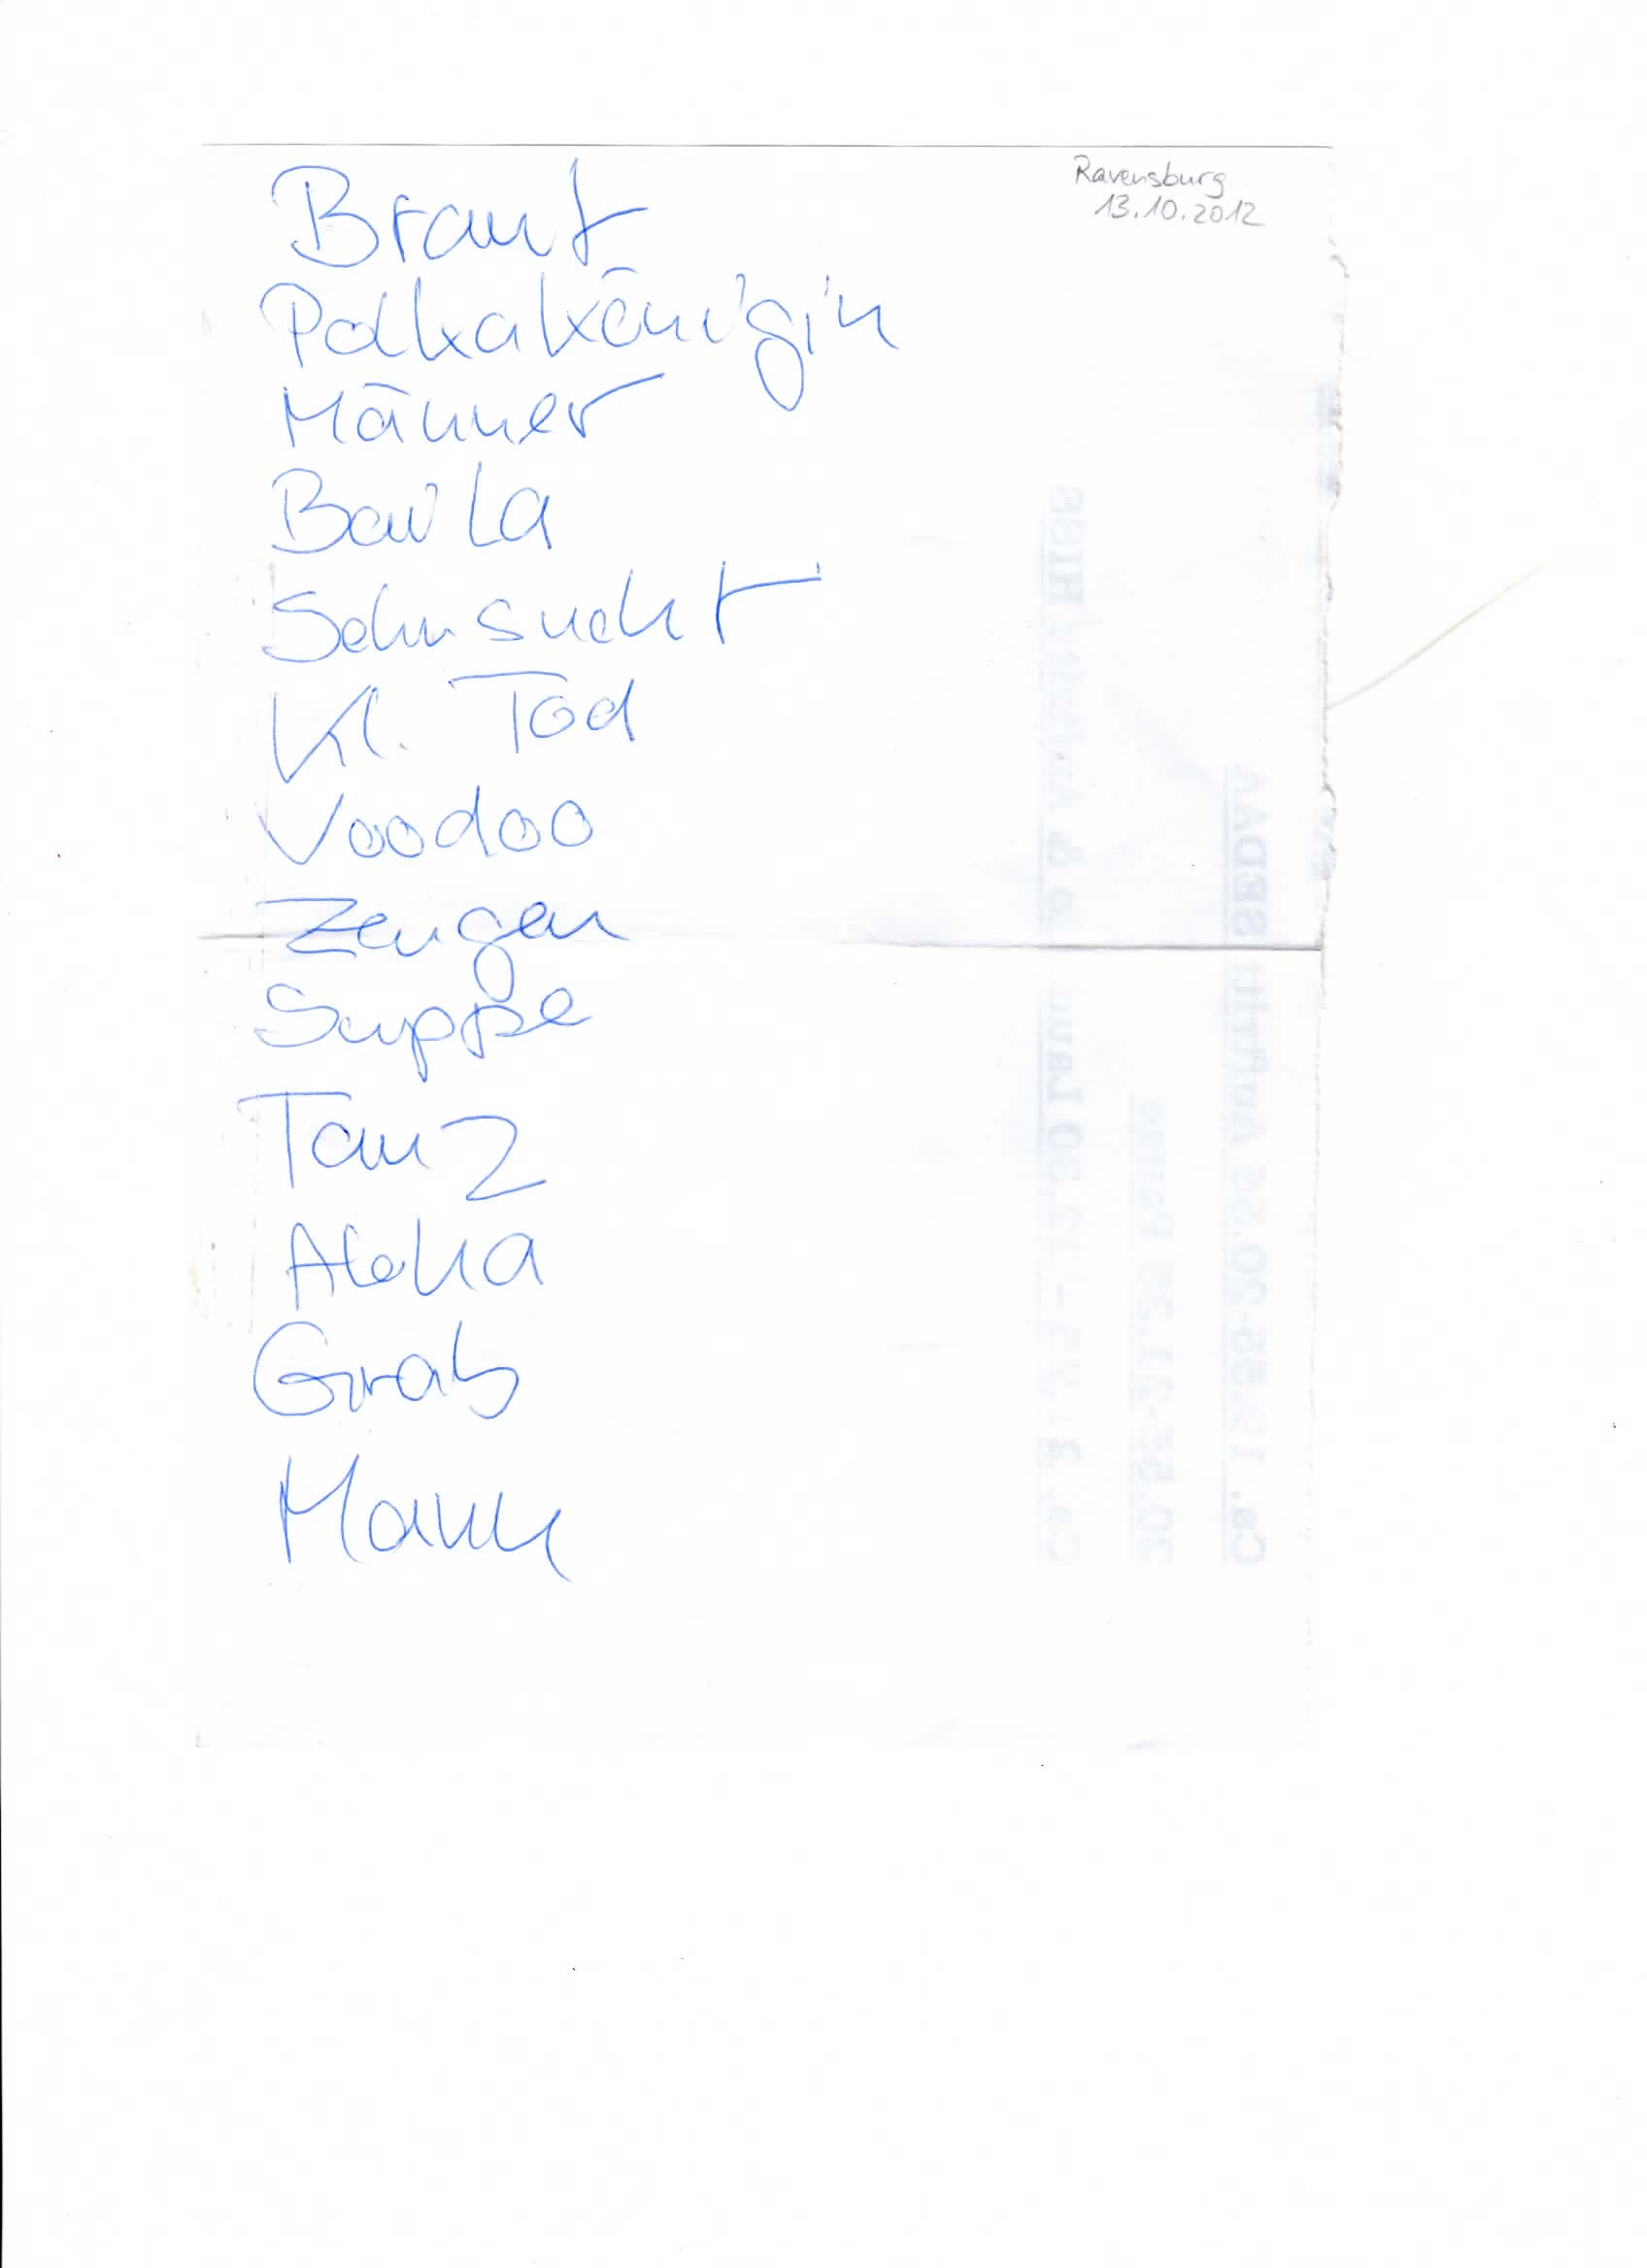 Ravensburg
13.10.2012
Braut
Polkakönigin
Männer
Bai La
Sehnsucht
Kl. Tod
Voodoo
Zeugen
Suppe
Tanz
Aloha
Grab
Mann